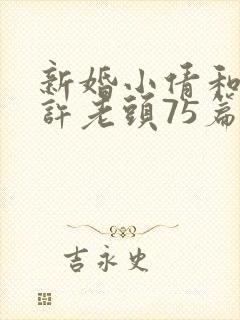 新婚小倩和
許老頭75篇
吉永史